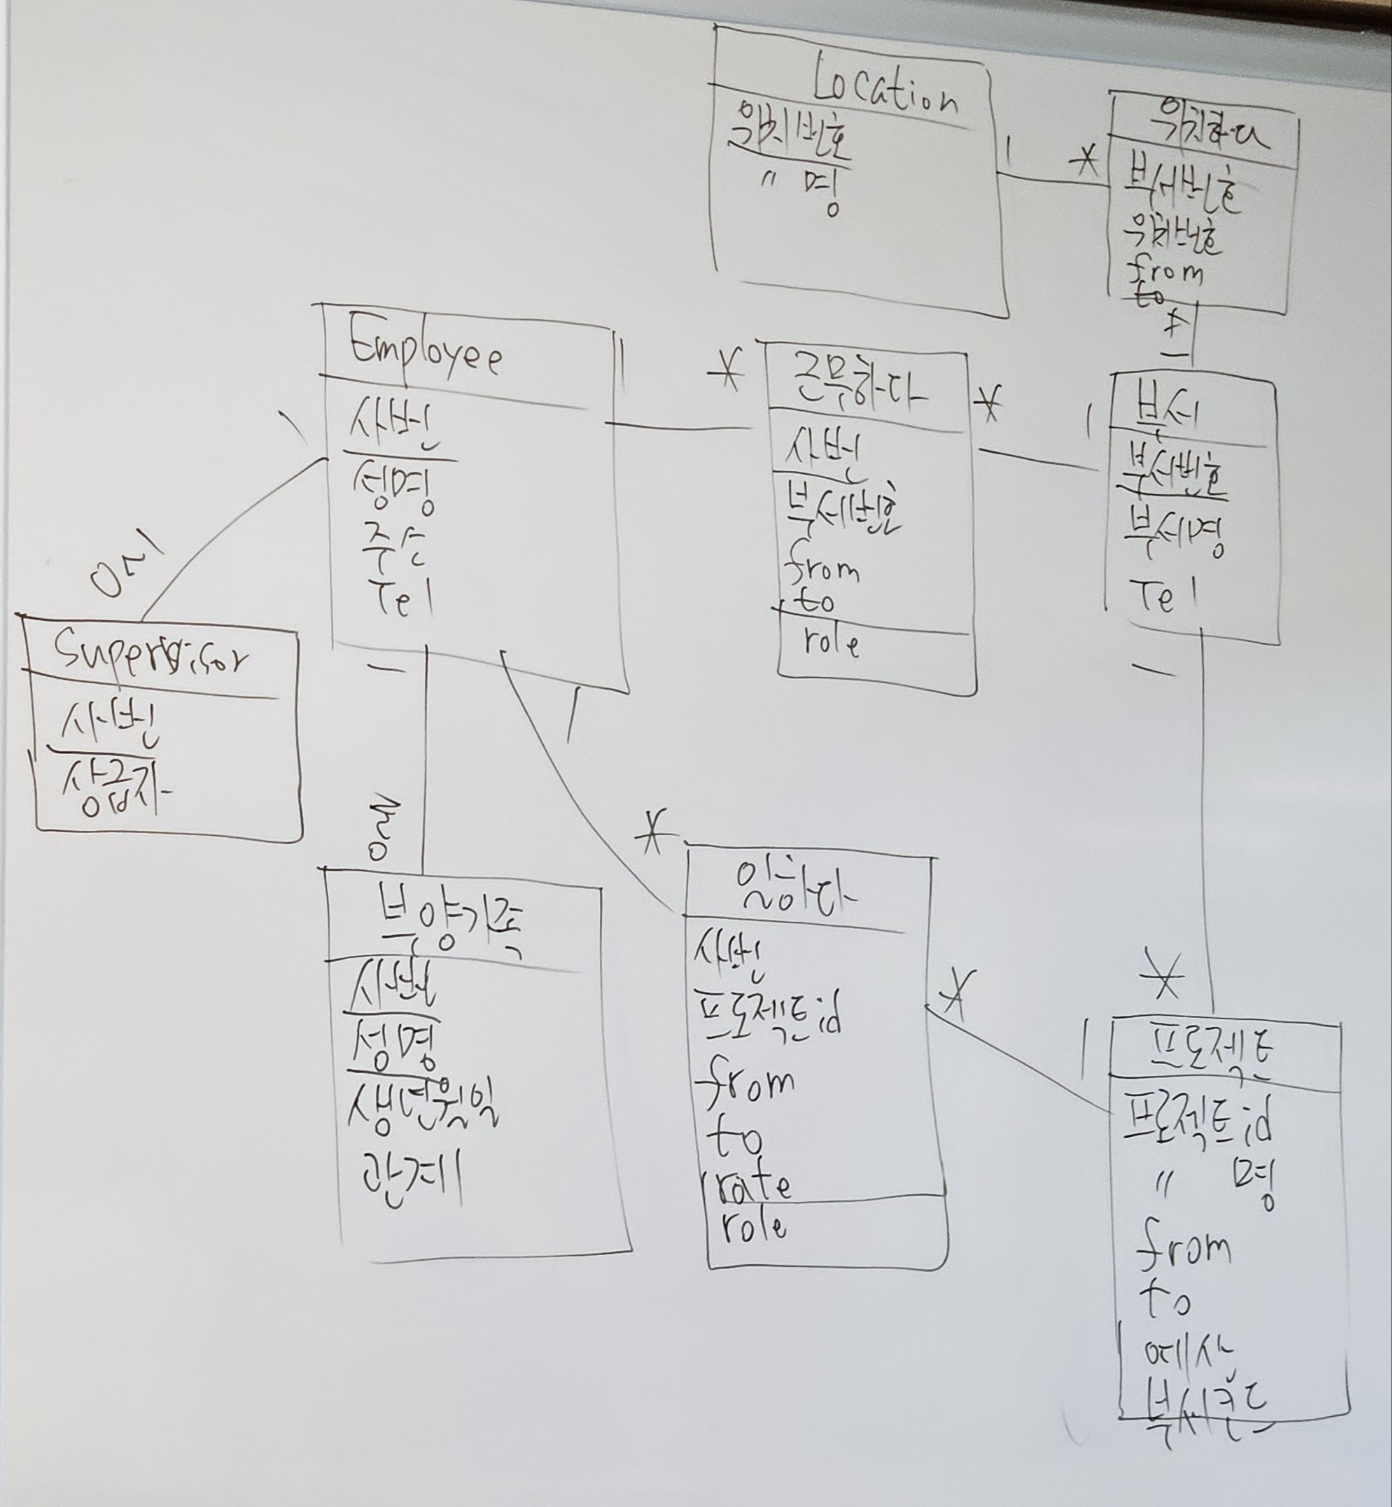 Location
위치번호
" 명
1
*
위치하다
부서번호
위치번호
from
to
*
1
Employee
사번
성명
주소
Tel
1
*
근무하다
사번
부서번호
from
to
role
*
1
부서
부서번호
부서명
Tel
1
0~1
Supervisor
사번
상급자
1
0~*
부양가족
사번
성명
생년월일
관계
1
*
일하다
사번
프로젝트id
from
to
rate
role
*
1
*
프로젝트
프로젝트id
" 명
from
to
예산